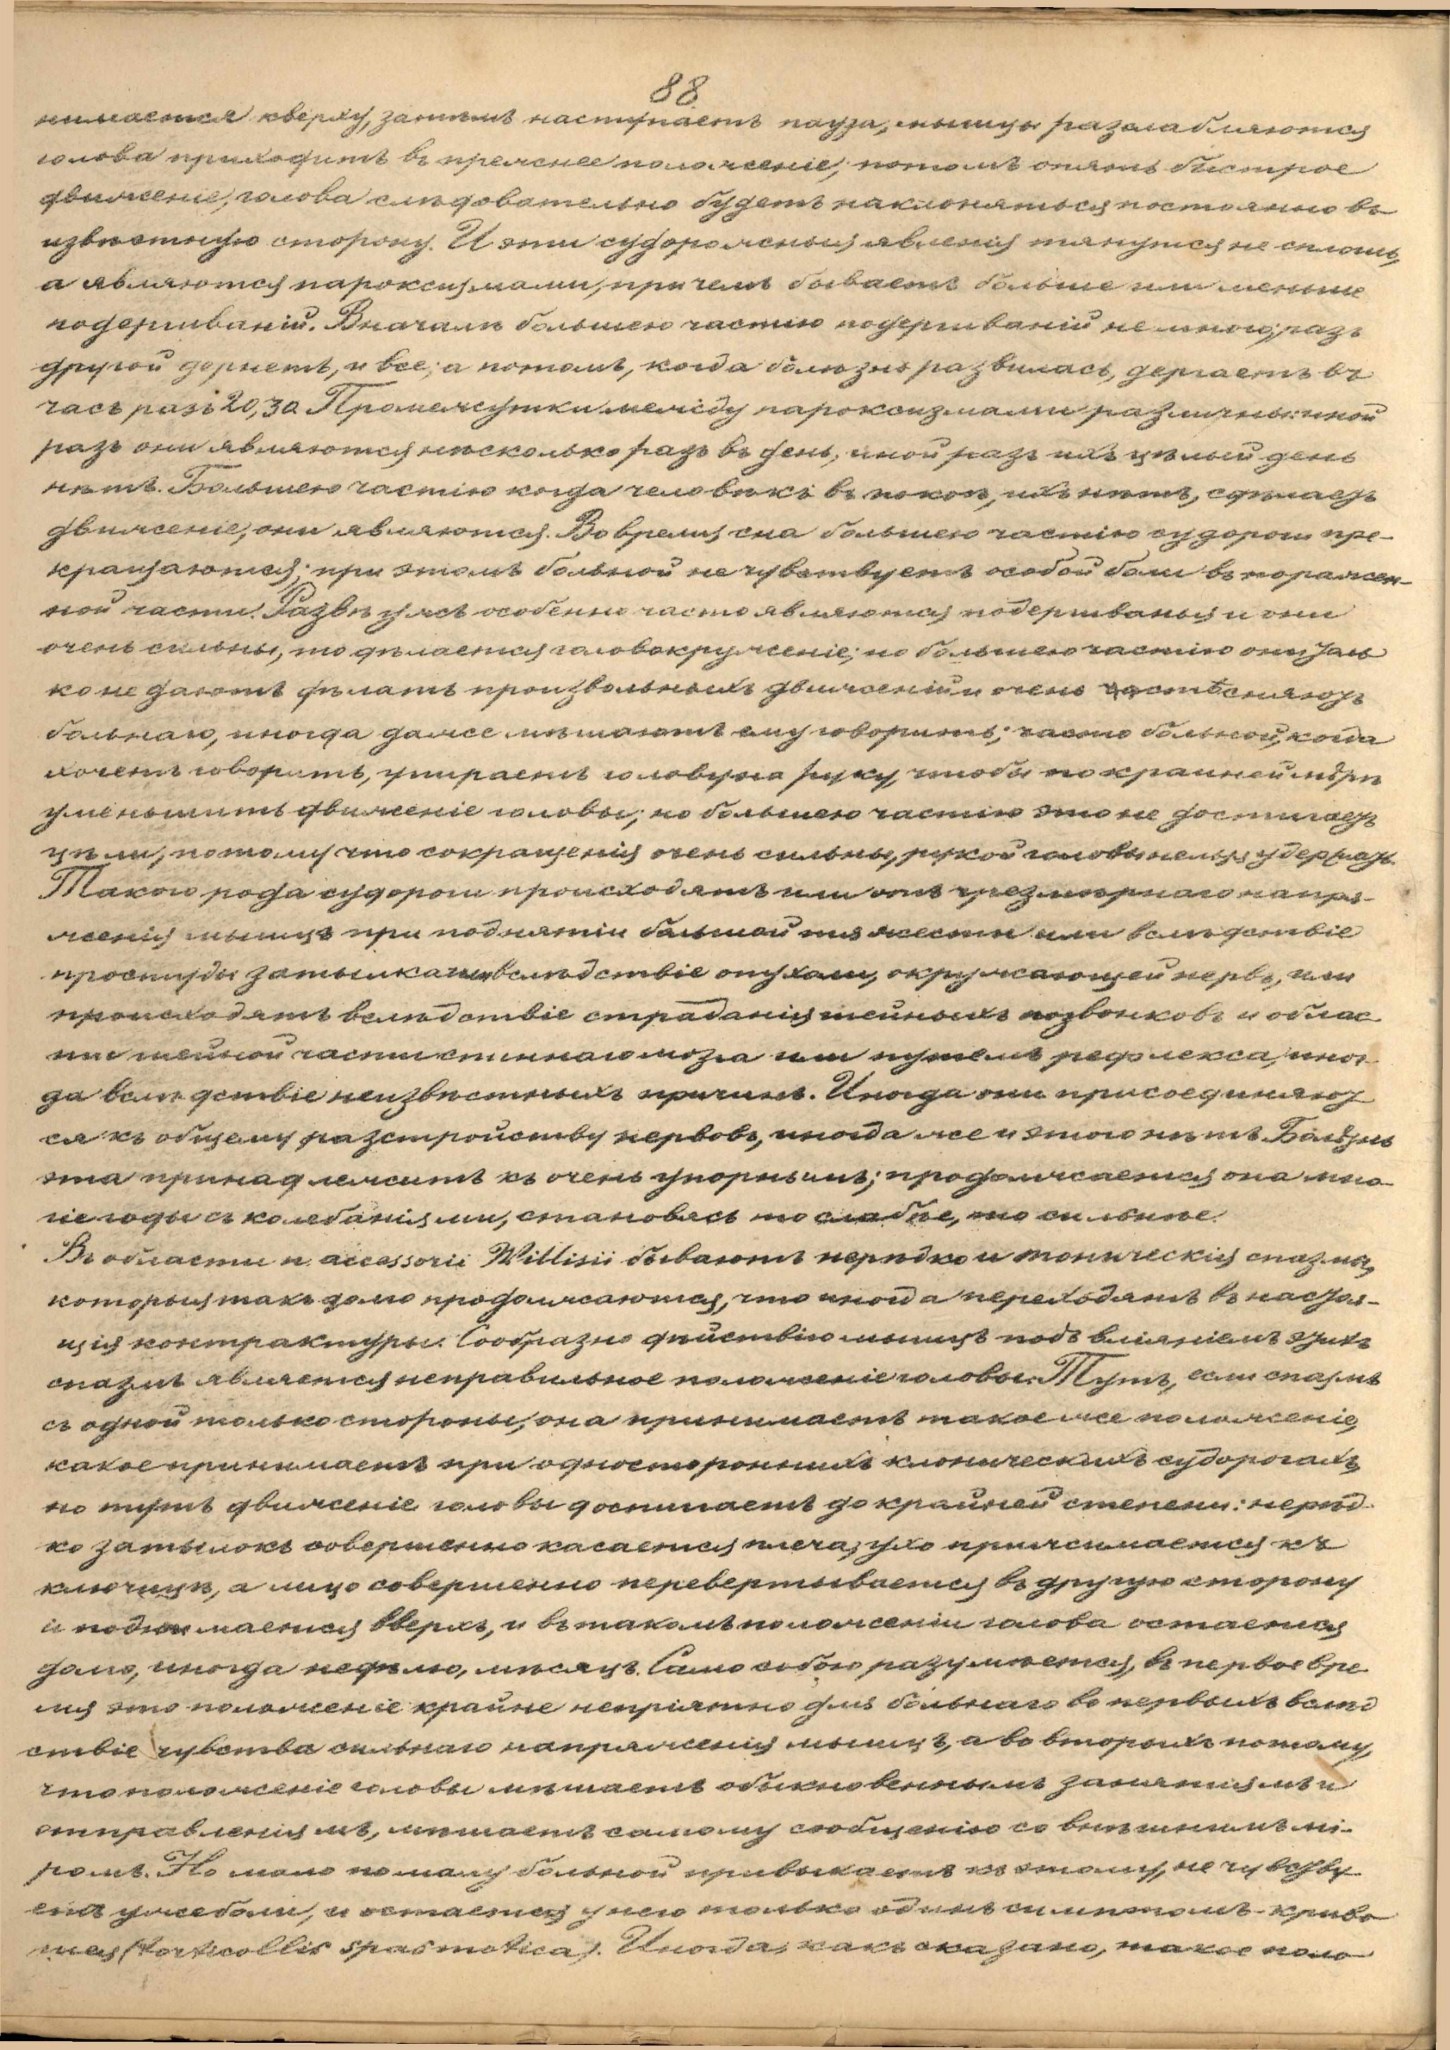 88
нимается кверху, затѣмъ наступаетъ пауза, мышцы разслабляются
голова приходитъ въ прежнее положеніе, потомъ опять быстрое
движеніе, голова слѣдовательно будетъ наклоняться постоянно въ
извѣстную сторону. И эти судорожныя явленія тянутся не сплошь,
а являются пароксизмами, при чемъ бываетъ больше или меньше
подергиваній. Вначалѣ большею частію подергиваній не много; разъ
другой дернетъ, и все; а потомъ, когда болѣзнь развилась, дергаетъ въ
часъ разъ 20, 30. Промежутки между пароксизмами различны: иной
разъ они являются нѣсколько разъ въ день, иной разъ ихъ цѣлый день
нѣтъ. Большею частію когда человѣкъ въ покоѣ, ихъ нѣтъ, сдѣлаетъ
движеніе, они являются. Во время сна большею частію судороги пре-
кращаются; при этомъ больной не чувствуетъ особой боли въ поражен-
ной части. Развѣ ужъ особенно часто являются подергиванья и они
очень сильны, то дѣлается головокруженіе; но большею частію они толь
ко не даютъ дѣлать произвольныхъ движеній и очень стѣсняютъ
больнаго, иногда даже мѣшаютъ ему говорить; часто больной, когда
хочетъ говорить, упираетъ голову на руку, чтобы по крайней мѣрѣ
уменьшить движеніе головы; но большею частію это не достигаетъ
цѣли, потому что сокращенія очень сильны, рукой головы нельзя удержать.
Такого рода судороги происходятъ или отъ чрезмѣрнаго напря-
женія мышцъ при поднятіи большой тяжести или вслѣдствіе
простуды затылка или вслѣдствіе опухоли, окружающей нервъ, или
происходятъ вслѣдствіе страданія шейныхъ позвонковъ и облас
ти шейной части спиннаго мозга или путемъ рефлекса, иног
да вслѣдствіе неизвѣстныхъ причинъ. Иногда они присоединяют
ся къ общему разстройству нервовъ, иногда же и этого нѣтъ. Болѣзнь
эта принадлежитъ къ очень упорнымъ; продолжается она мно
гіе годы съ колебаніями, становясь то слабѣе, то сильнѣе.
Въ области n. accessorii Willisii бываютъ нерѣдко и тоническія спазмы,
которыя такъ долго продолжаются, что иногда переходятъ въ настоя-
щія контрактуры. Сообразно дѣйствію мышцъ подъ вліяніемъ этихъ
спазмъ является неправильное положеніе головы. Тутъ, если спазмъ
съ одной только стороны, она принимаетъ такое же положеніе,
какое принимаетъ при одностороннихъ клоническихъ судорогахъ,
но тутъ движеніе головы достигаетъ до крайней степени: нерѣд
ко затылокъ совершенно касается плеча, ухо прижимается къ
ключицѣ, а лицо совершенно перевертывается въ другую сторону
и поднимается вверхъ, и въ такомъ положеніи голова остается
долго, иногда недѣлю, мѣсяцъ. Само собою разумѣется, въ первое вре
мя это положеніе крайне непріятно для больнаго во первыхъ вслѣд
ствіе чувства сильнаго напряженія мышцъ, а во вторыхъ потому,
что положеніе головы мѣшаетъ обыкновеннымъ занятіямъ и
отправленіямъ, мѣшаетъ самому сообщенію со внѣшнимъ мі-
ромъ. Но мало по малу больной привыкаетъ къ этому, не чувству
етъ уже боли, и остается у него только одинъ симптомъ - криво
шея (torticollis spasmotica). Иногда, какъ сказано, такое поло